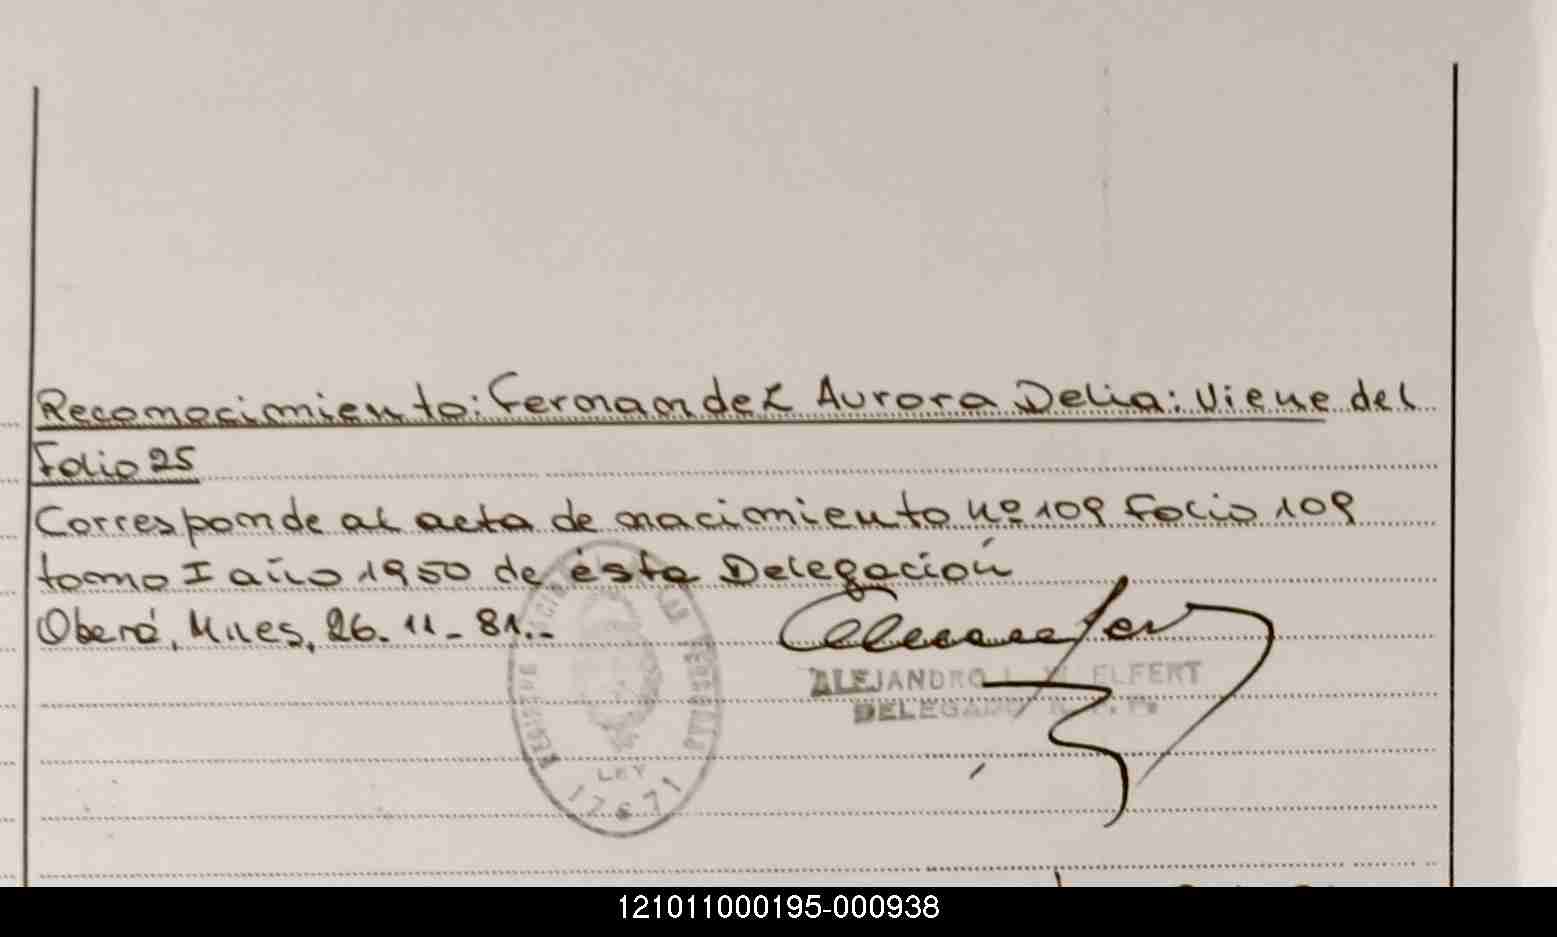 Reconocimiento: Fernandez Aurora Delia: Viene del
Folio 25
Corresponde al acta de nacimiento nº 109 Folio 109
tomo I año 1950 de ésta Delegación
Oberá, Mnes, 26-11-81.-
ALEJANDRO L. W. ELFERT
DELEGADO R. P. P.
REGISTRO NACIONAL DE LAS PERSONAS
LEY
17671
121011000195-000938